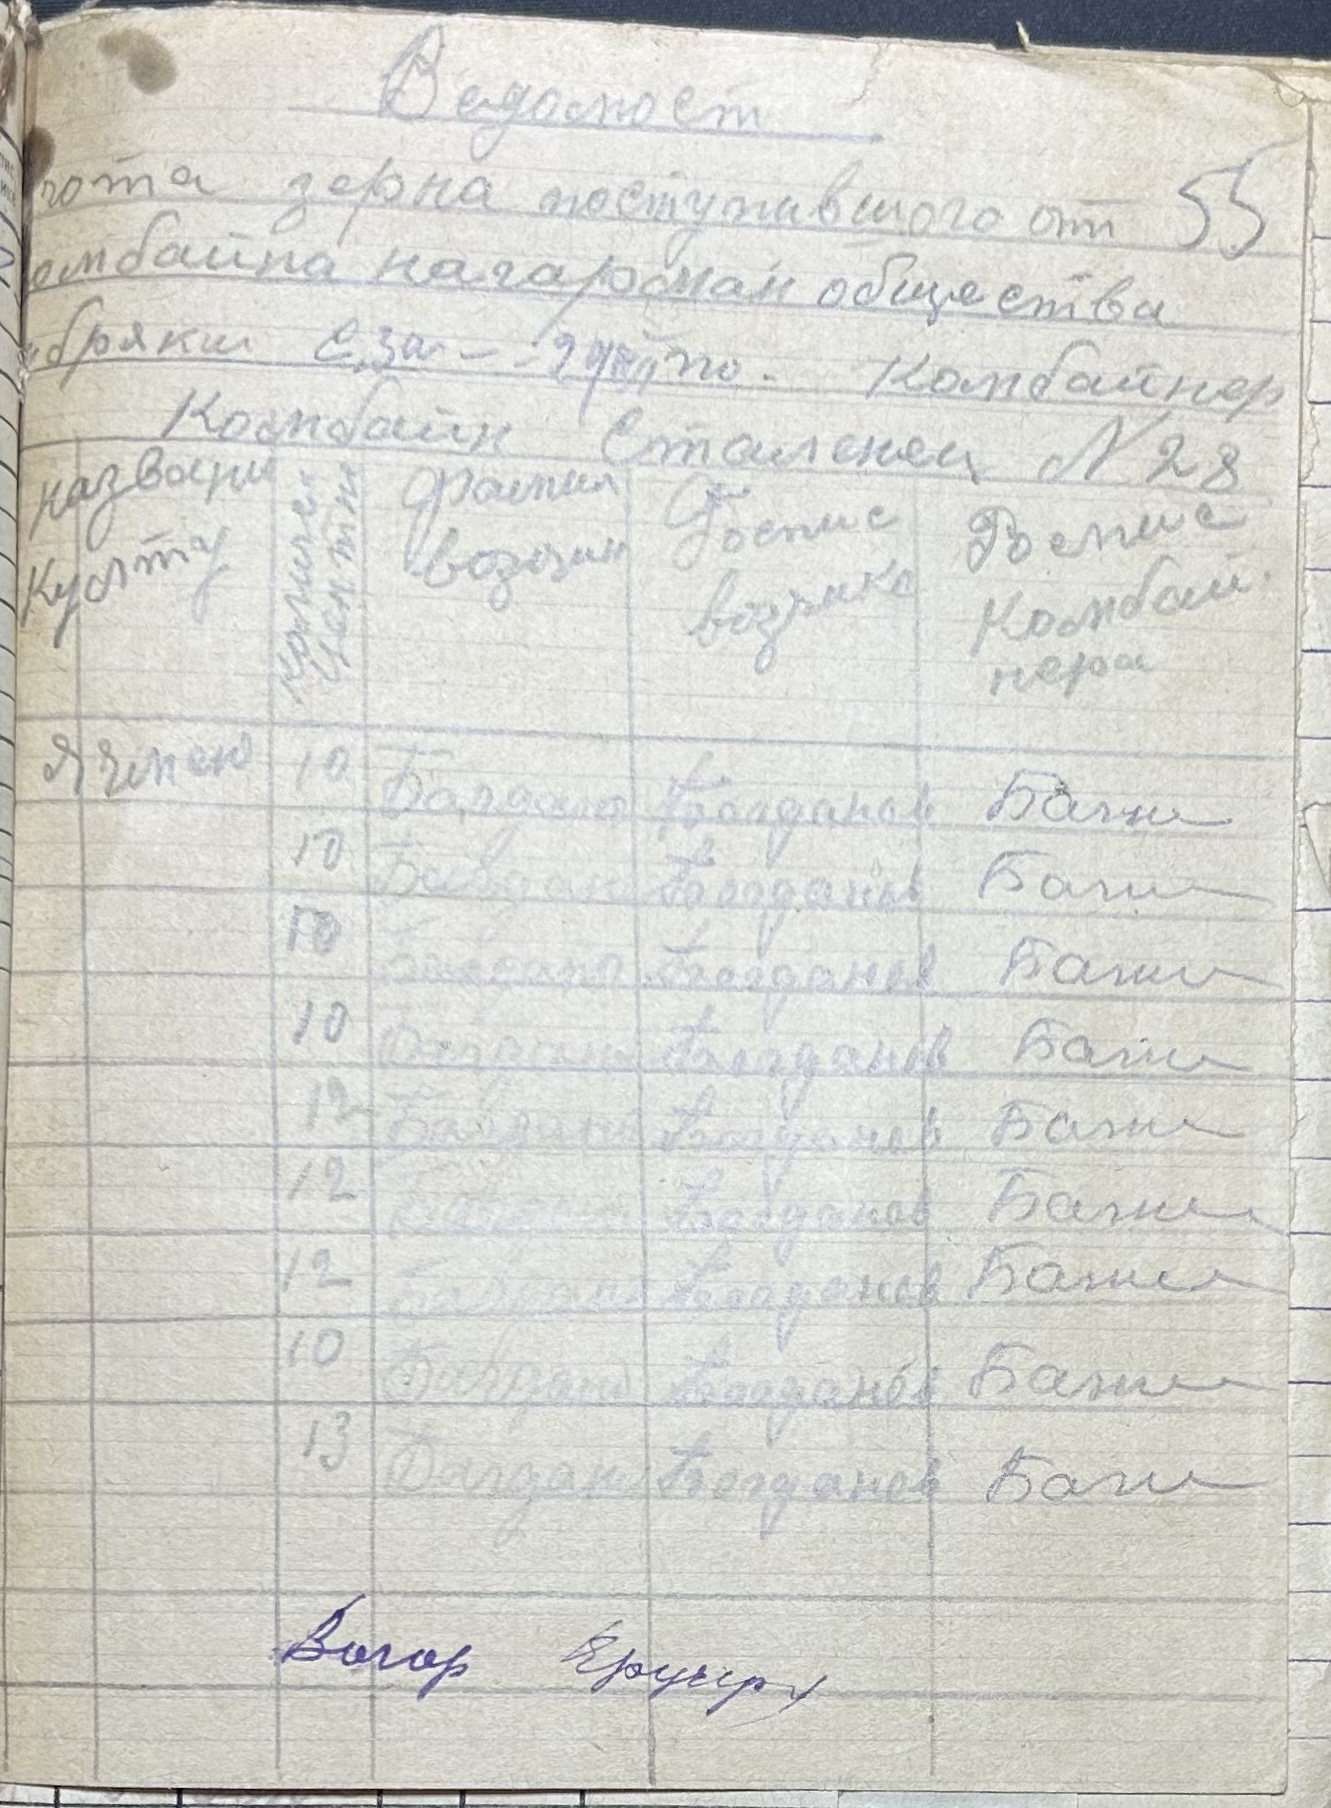 Ведомост
чота зерна поступившого от 55
омбайна нагарман общества
бряки Комбайнер
Комбайн Сталенец N 28
названи Культу
Количес Центне
Фамил возчик
Роспис возчика
Роспис Комбай нера
Ячмен 10 Багдано Богданов Бажи
10 Багдан Богданов Бажи
10 Багдано Богданов Бажи
10 Багдан Богданов Бажи
12 Багдано Богданов Бажи
12 Багдано Богданов Бажи
12 Багдано Богданов Бажи
10 Багдано Богданов Бажи
13 Багдан Богданов Бажи